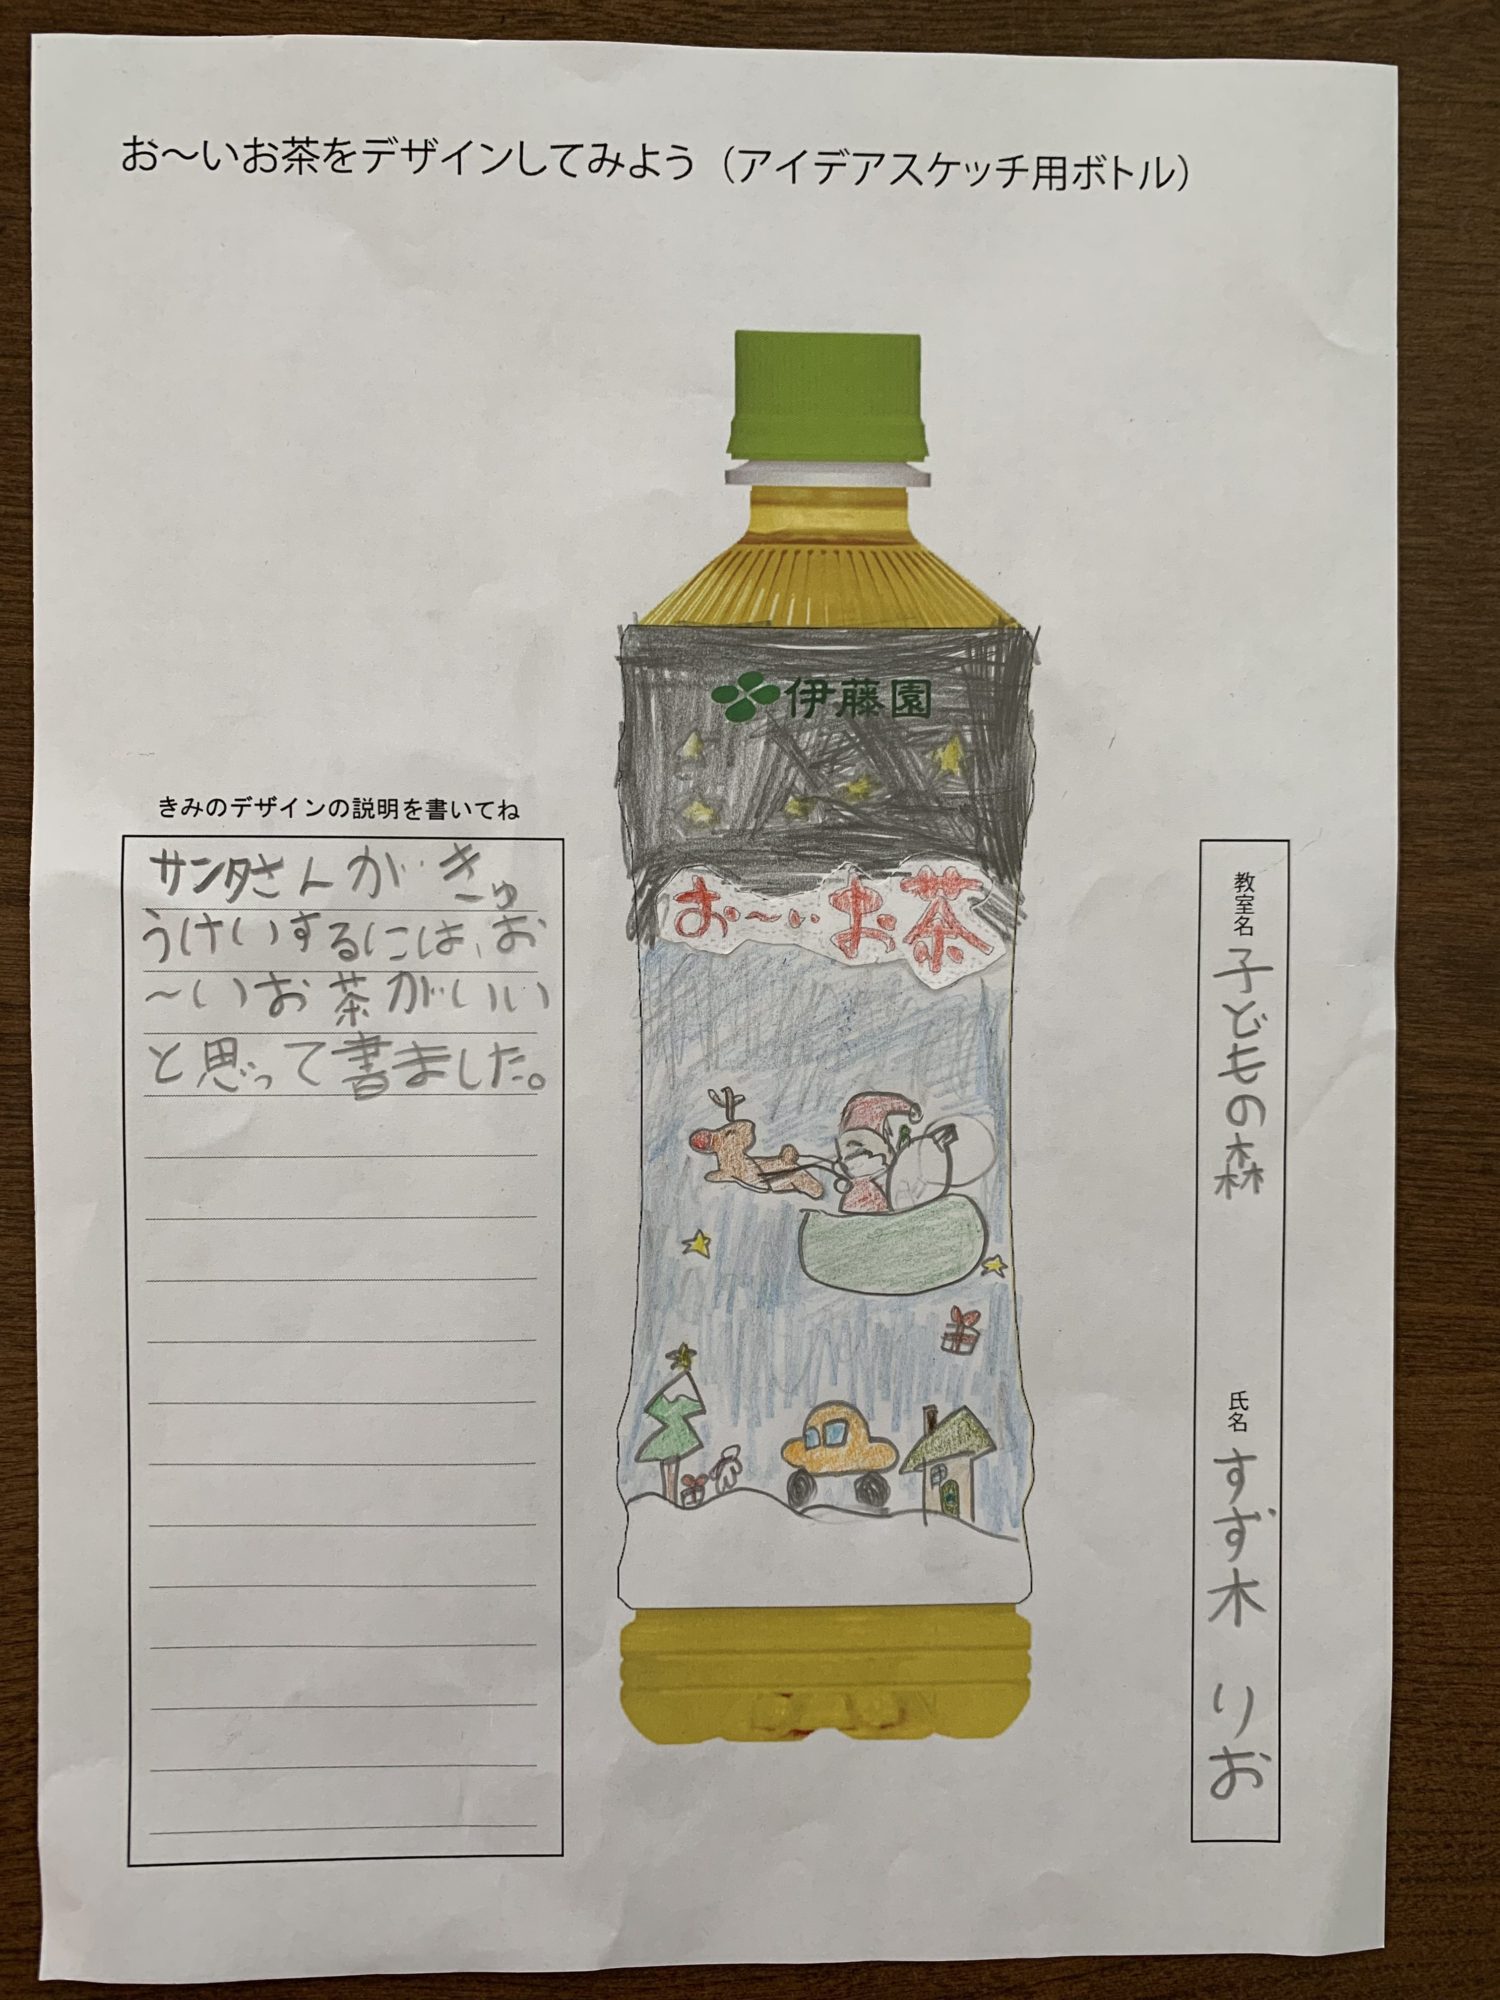 お～いお茶をデザインしてみよう（アイデアスケッチ用ボトル）
伊藤園
お～いお茶
きみのデザインの説明を書いてね
サンタさんがきゅ
うけいするには、お
～いお茶がいい
と思って書ました。
教室名 子どもの森
氏名 すず木 りお